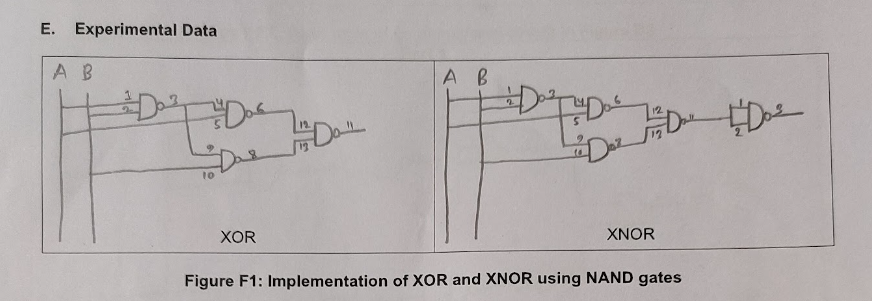 E. Experimental Data
A B
1
2
3
4
5
6
9
10
8
12
13
11
XOR
A B
1
2
3
4
5
6
9
10
8
12
13
11
1
2
3
XNOR
Figure F1: Implementation of XOR and XNOR using NAND gates